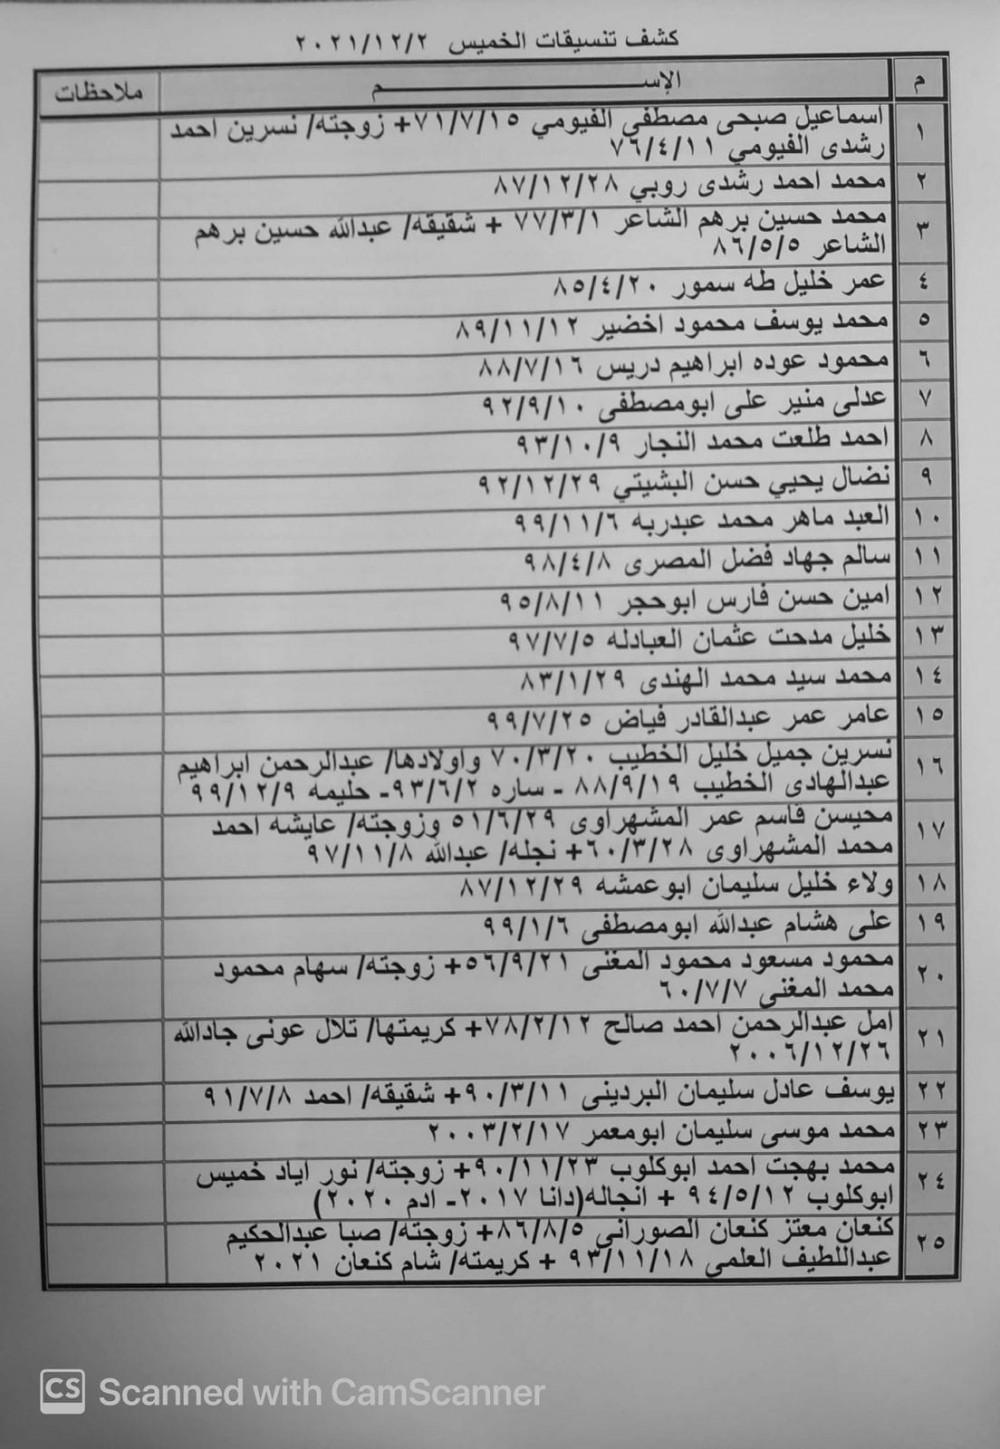 كشف تنسيقات الخميس ٢٠٢١/١٢/٢
م الإســـــــــــــــــم ملاحظات
١ اسماعيل صبحى مصطفى الفيومي ٧١/٧/١٥+ زوجته/ نسرين احمد
رشدى الفيومي ٧٦/٤/١١
٢ محمد احمد رشدى روبي ٨٧/١٢/٢٨
٣ محمد حسين برهم الشاعر ٧٧/٣/١ + شقيقه/ عبدالله حسين برهم
الشاعر ٨٦/٥/٥
٤ عمر خليل طه سمور ٨٥/٤/٢٠
٥ محمد يوسف محمود اخضير ٨٩/١١/١٢
٦ محمود عوده ابراهيم دريس ٨٨/٧/١٦
٧ عدلى منير على ابومصطفى ٩٢/٩/١٠
٨ احمد طلعت محمد النجار ٩٣/١٠/٩
٩ نضال يحيي حسن البشيتي ٩٢/١٢/٢٩
١٠ العبد ماهر محمد عبدربه ٩٩/١١/٦
١١ سالم جهاد فضل المصرى ٩٨/٤/٨
١٢ امين حسن فارس ابوحجر ٩٥/٨/١١
١٣ خليل مدحت عثمان العبادله ٩٧/٧/٥
١٤ محمد سيد محمد الهندى ٨٣/١/٢٩
١٥ عامر عمر عبدالقادر فياض ٩٩/٧/٢٥
١٦ نسرين جميل خليل الخطيب ٧٠/٣/٢٠ واولادها/ عبدالرحمن ابراهيم
عبدالهادى الخطيب ٨٨/٩/١٩ - ساره ٩٣/٦/٢- حليمه ٩٩/١٢/٩
١٧ محيسن قاسم عمر المشهراوى ٥١/٦/٢٩ وزوجته/ عايشه احمد
محمد المشهراوى ٦٠/٣/٢٨+ نجله/ عبدالله ٩٧/١١/٨
١٨ ولاء خليل سليمان ابوعمشه ٨٧/١٢/٢٩
١٩ على هشام عبدالله ابومصطفى ٩٩/١/٦
٢٠ محمود مسعود محمود المغنى ٥٦/٩/٢١+ زوجته/ سهام محمود
محمد المغنى ٦٠/٧/٧
٢١ امل عبدالرحمن احمد صالح ٧٨/٢/١٢+ كريمتها/ تلال عونى جادالله
٢٠٠٦/١٢/٢٦
٢٢ يوسف عادل سليمان البردينى ٩٠/٣/١١+ شقيقه/ احمد ٩١/٧/٨
٢٣ محمد موسى سليمان ابومعمر ٢٠٠٣/٢/١٧
٢٤ محمد بهجت احمد ابوكلوب ٩٠/١١/٢٣+ زوجته/ نور اياد خميس
ابوكلوب ٩٤/٥/١٢ + انجاله(دانا ٢٠١٧- ادم ٢٠٢٠)
٢٥ كنعان معتز كنعان الصورانى ٨٦/٨/٥+ زوجته/ صبا عبدالحكيم
عبداللطيف العلمى ٩٣/١١/١٨ + كريمته/ شام كنعان ٢٠٢١
CS Scanned with CamScanner